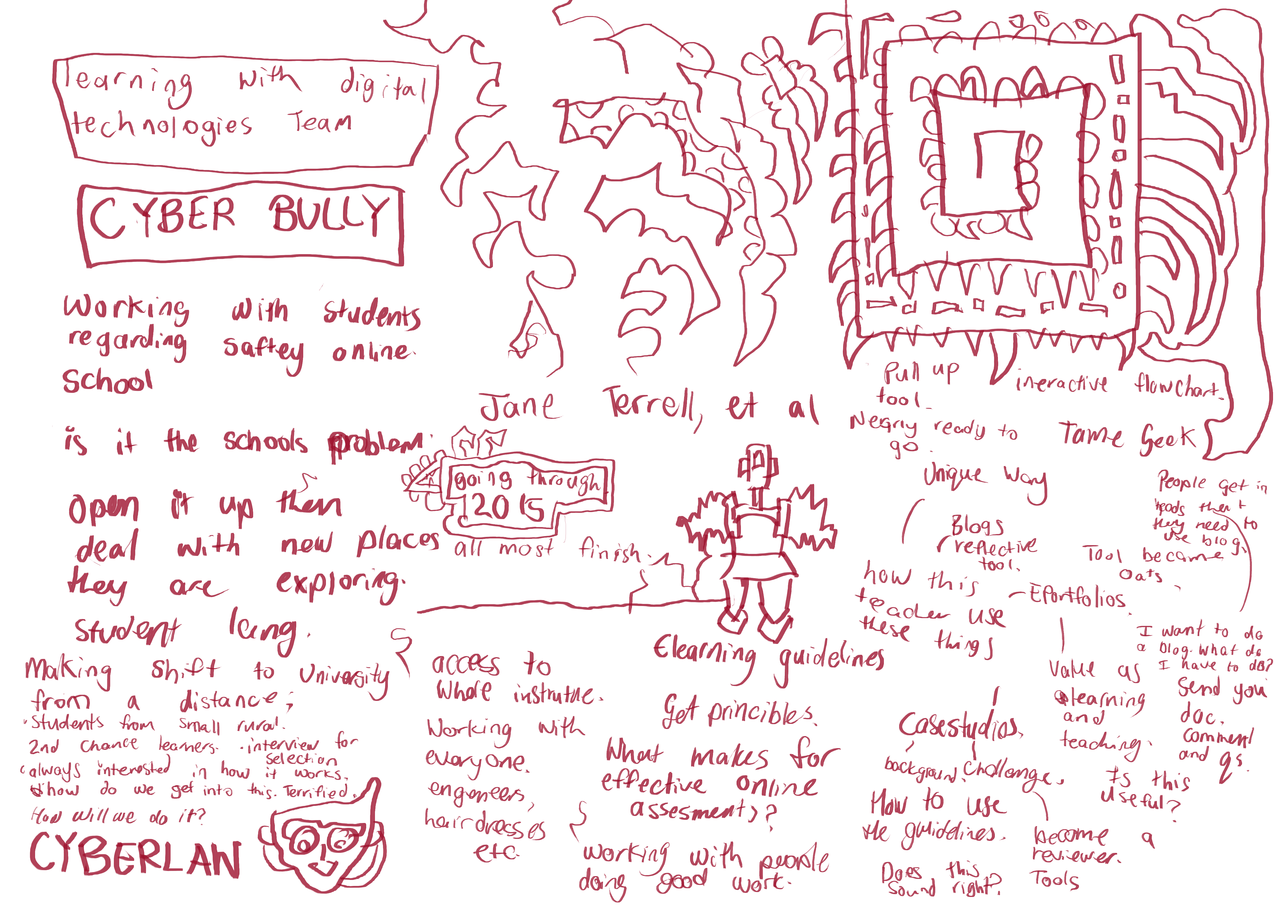 learning with digital
technologies Team
CYBER BULLY
Working with students
regarding saftey online.
School
is it the schools problem.
open it up then
deal with new places
they are exploring.
student leing.
Making shift to University
from a distance;
Students from small rural.
2nd chance learners. interview for
selection
always interested in how it works.
how do we get into this. Terrified.
How will we do it?
CYBERLAN
Jane Terrell, et al
going through
2015
all most finish.
access to
whole institutue.
Working with
everyone.
engeneers,
hairdresses
etc.
Elearning guidelines
Get princibles.
What makes for
effective online
assesments?
working with people
doing good work.
Pull up
tool.
Neariy ready to
go.
ineractive flowchart.
Tame Geek
Unique way
Blogs
reflective
tool.
how this
teacher use
these things
Efortfolios.
Tool became
oats.
People get in
heads that
they need to
use blog.
I want to do
a blog. what do
I have to do?
Send you
doc.
comment
and qs.
Value as
elearning
and
teaching.
Is this
useful?
Casestudios,
background. Challenge.
How to use
the guidelines.
Does this
sound right?
become a
reviewer.
Tools